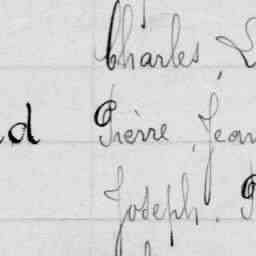 Charles, L
d Pierre, Jean
Joseph, P